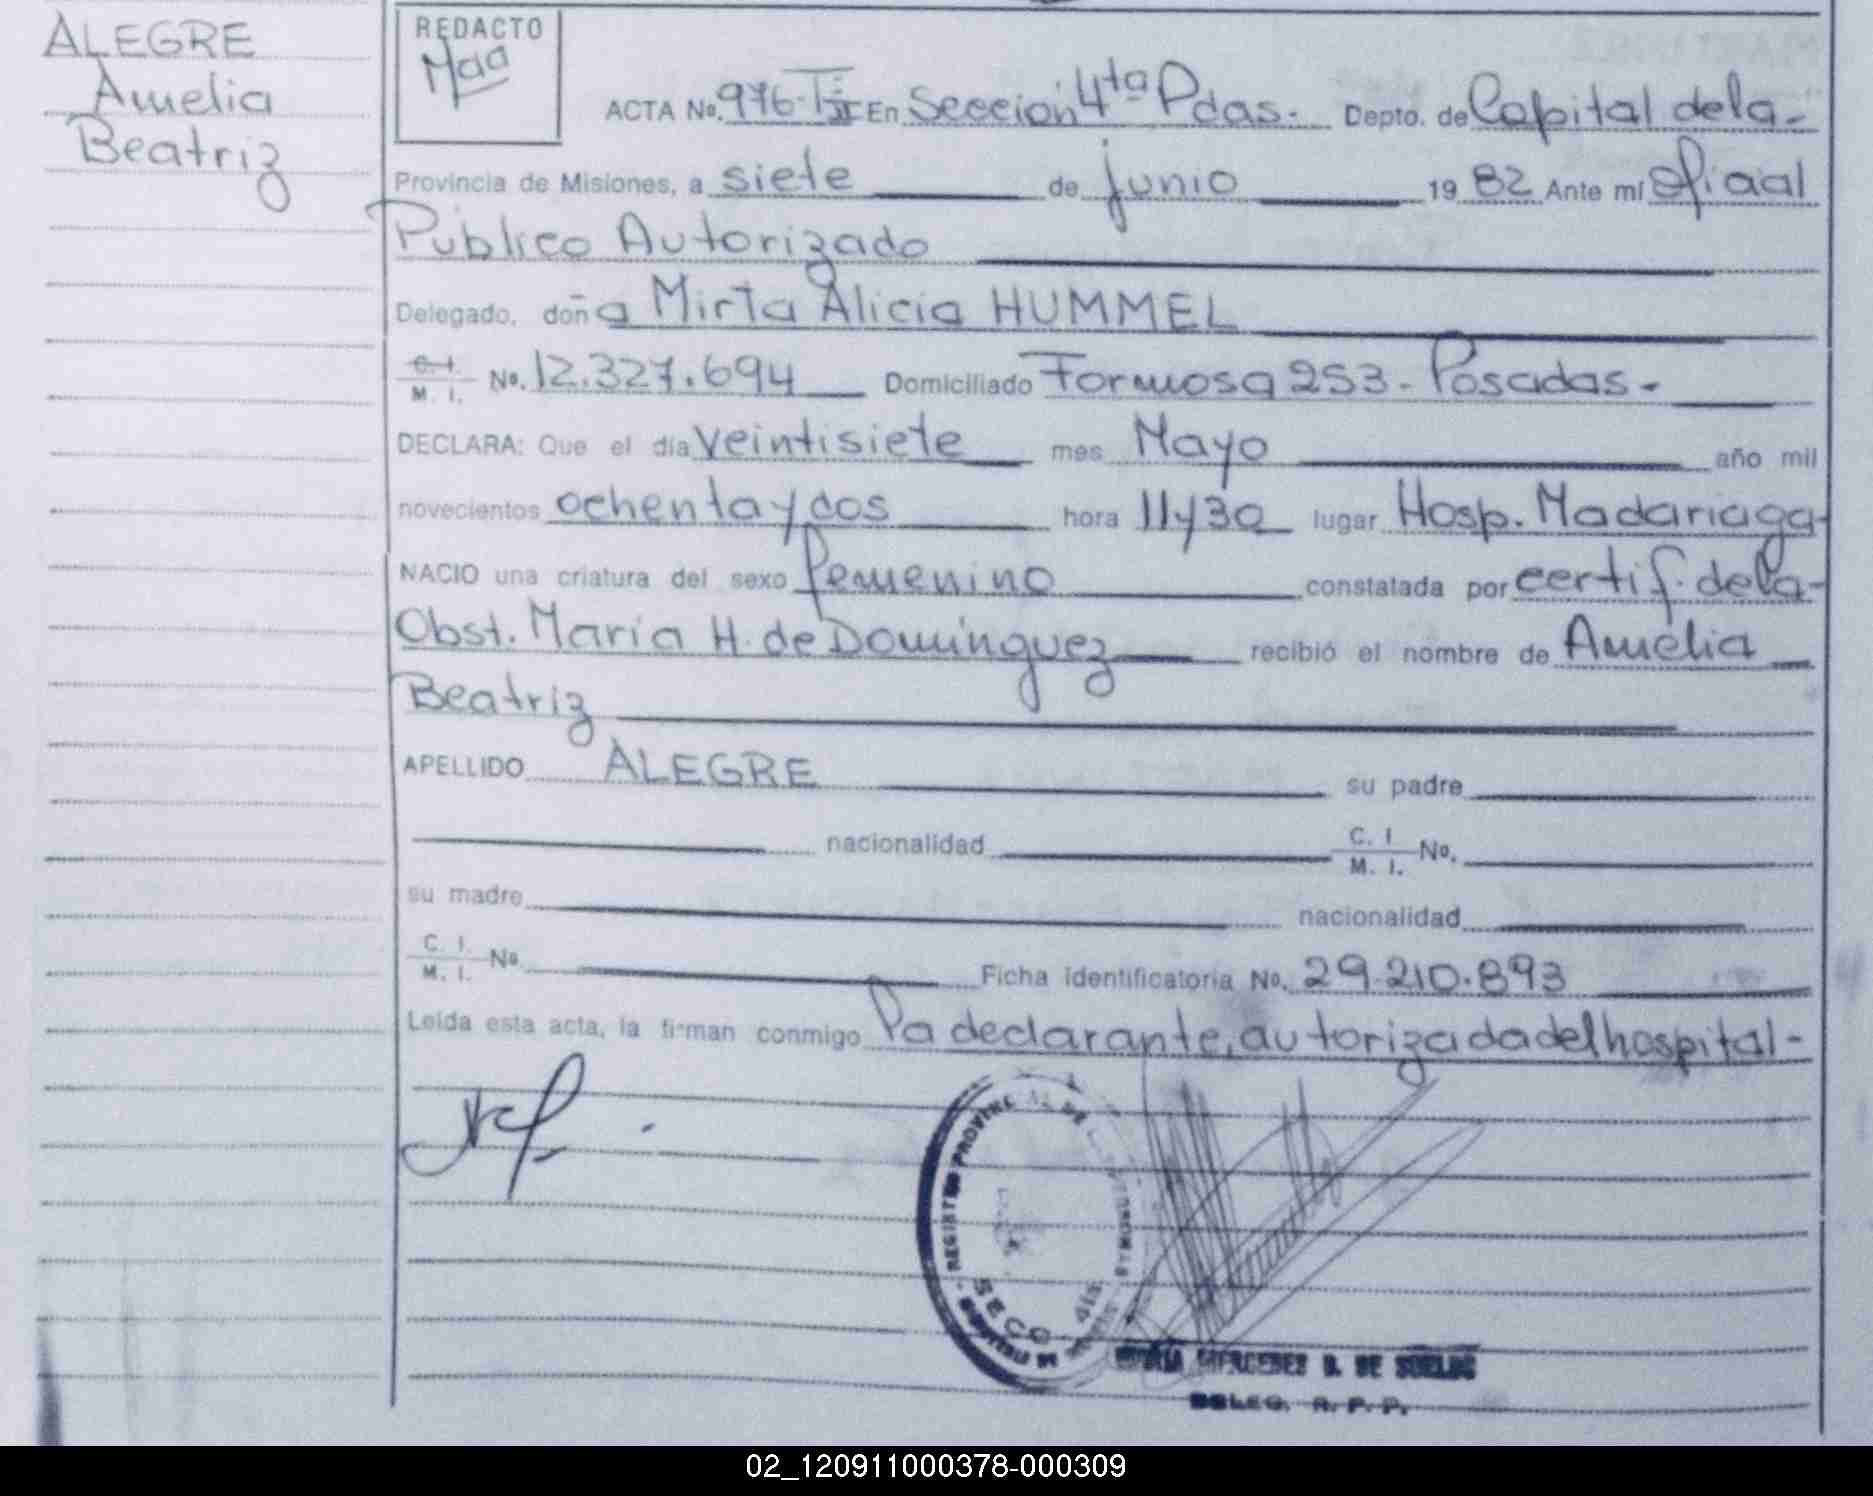 ALEGRE
Amelia
Beatriz
REDACTO
ACTA No. 976-T II En Sección 4ta Pdas. Depto. de Capital de la-
Provincia de Misiones, a siete de junio 1982 Ante mí Oficial
Público Autorizado
Delegado, doña Mirta Alicia HUMMEL
C. I. M. I. No. 12.327.694 Domiciliado Formosa 253 - Posadas-
DECLARA: Que el día veintisiete mes Mayo año mil
novecientos ochenta y dos hora 11y30 lugar Hosp. Madariaga-
NACIO una criatura del sexo femenino constatada por certif. de la-
Obst. María H. de Domínguez recibió el nombre de Amelia
Beatriz
APELLIDO ALEGRE su padre
nacionalidad C. I. M. I. No.
su madre nacionalidad
C. I. M. I. No. Ficha identificatoria No. 29.210.893
Leída esta acta, la firman conmigo la declarante, autorizada del hospital-
REGISTRO PROVINCIAL DE
SECC 4ta
MERCEDES D. DE
DELEG. R. P. P.
02_120911000378-000309